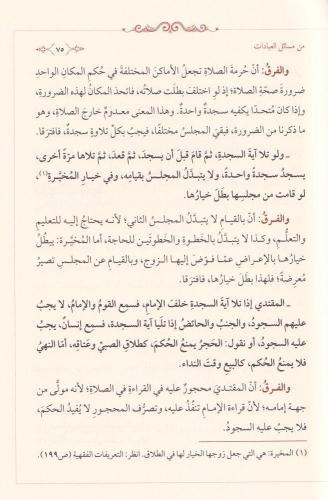 من مسائل العبادات
٧٥
والفرقُ: أنّ حُرمةَ الصلاةِ تجعلُ الأماكنَ المختلفةَ في حُكمِ المكانِ الواحدِ
ضرورةَ صحّةِ الصلاةِ؛ إذ لو اختلفَت بطلَت صلاتُه، فاتحدَ المكانُ لهذه الضرورةِ،
وإذا كان مُتحدًا يكفيه سجدةٌ واحدةٌ. وهذا المعنى معدومٌ خارجَ الصلاةِ، وهو
ما ذكرنا من الضرورةِ، فبقيَ المجلسُ مختلفًا، فيجبُ بكلِّ تلاوةٍ سجدةٌ، فافترَقا.
ـ ولو تلا آيةَ السجدةِ، ثمَّ قامَ قبلَ أن يسجدَ، ثمَّ قعدَ، ثمَّ تلاها مرّةً أخرى،
يسجدُ سجدةً واحدةً، ولا يتبدَّلُ المجلسُ بقيامِه، وفي خيارِ المُخيَّرةِ(١)،
لو قامت من مجلسِها بطلَ خيارُها.
والفرقُ: أنّ بالقيامِ لا يتبدّلُ المجلسُ الثاني؛ لأنه يحتاجُ إليه للتعليمِ
والتعلُّمِ، وكذا لا يتبدّلُ بالخَطوةِ والخَطوتينِ للحاجةِ، أما المُخيَّرة: يبطُلُ
خيارُها بالإعراضِ عمّا فوّضَ إليها الزوج، وبالقيامِ عن المجلسِ تصيرُ
مُعرِضةً؛ فلهذا بطلَ خيارُها، فافترَقا.
ـ المقتدي إذا تلا آيةَ السجدةِ خلفَ الإمامِ، فسمِع القومُ والإمامُ، لا يجبُ
عليهم السجودُ، والجنبُ والحائضُ إذا تليا آيةَ السجدة، فسمع إنسانٌ، يجبُ
عليه السجودُ، أو نقول: الحَجرُ يمنعُ الحُكمَ، كطلاقِ الصبيِّ وعَتاقِه، أمّا النهيُ
فلا يمنعُ الحُكم، كالبيعِ وقتَ النداء.
والفرقُ: أنّ المقتديَ محجورٌ عليه في القراءةِ في الصلاةِ؛ لأنه مولًّى من
جهةِ إمامِه؛ لأنّ قراءةَ الإمامِ تنفُذُ عليه، وتصرُّف المحجورِ لا يُفيدُ الحكمَ،
فلا يجبُ عليه السجودُ.
(١) المخيرة: هي التي جعل زوجها الخيار لها في الطلاق. انظر: التعريفات الفقهية (ص١٩٩).